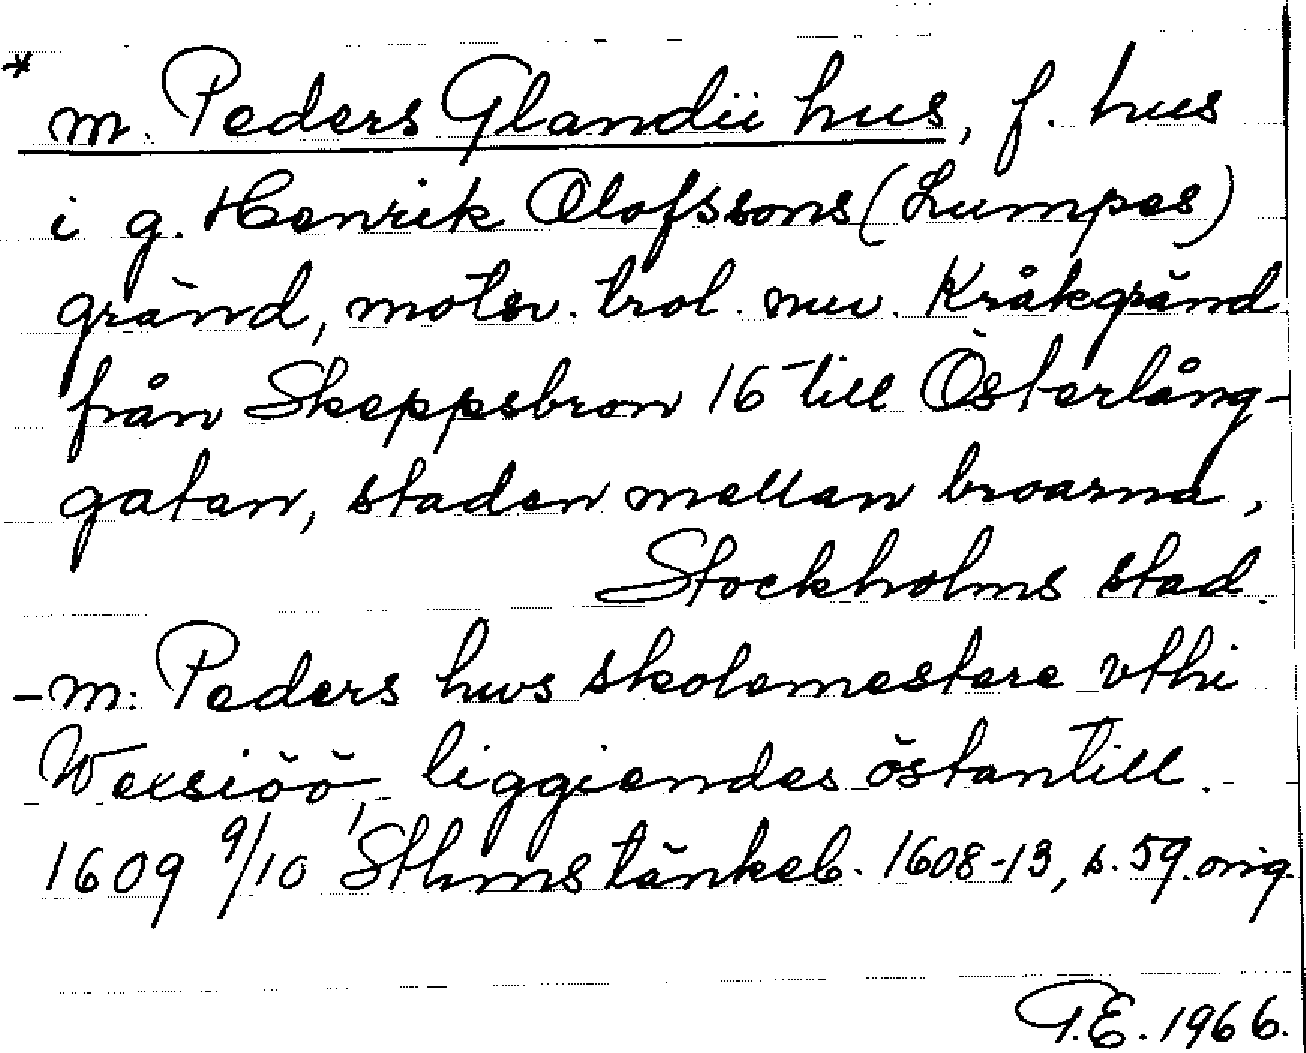 * m. Peders Glandii hus, f. hus
i g. Henrik Olofssons (Lumpes)
gränd, motsv. trol. nuv. Kråkgränd
från Skeppsbron 16 till Österlång-
gatan, staden mellan broarna,
Stockholms stad.
- m: Peders hws skolemestere vthi
Wexsiöö, liggiendes östantill.
1609 9/10 Sthms tänkeb. 1608-13, s. 59. orig.
G.E. 1966.